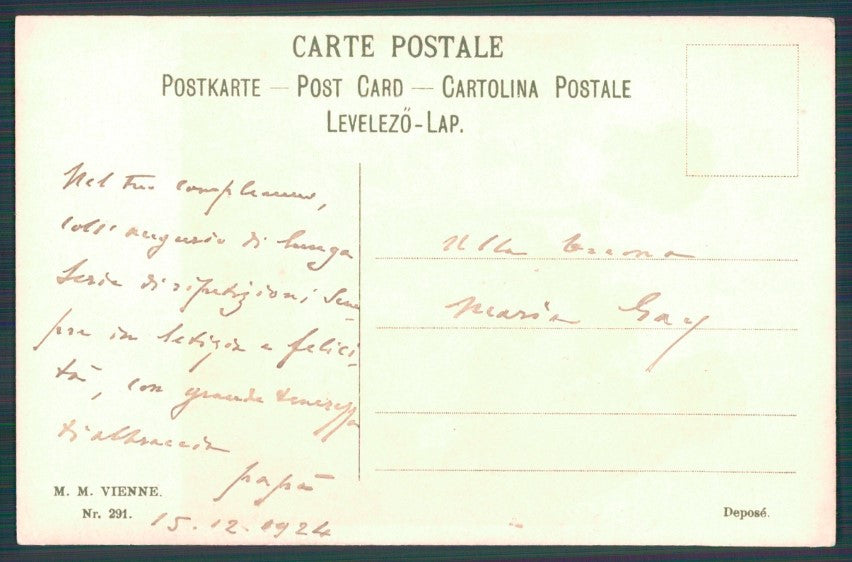 CARTE POSTALE
POSTKARTE — POST CARD — CARTOLINA POSTALE
LEVELEZŐ-LAP.
Nel tuo compleanno,
coll'augurio di lunga
serie di ripetizioni sem-
pre in letizia e felici-
tà, con grande tenerezza
ti abbraccia
papà
15.12.1924
Alla buona
Maria Gay
M. M. VIENNE.
Nr. 291.
Deposé.